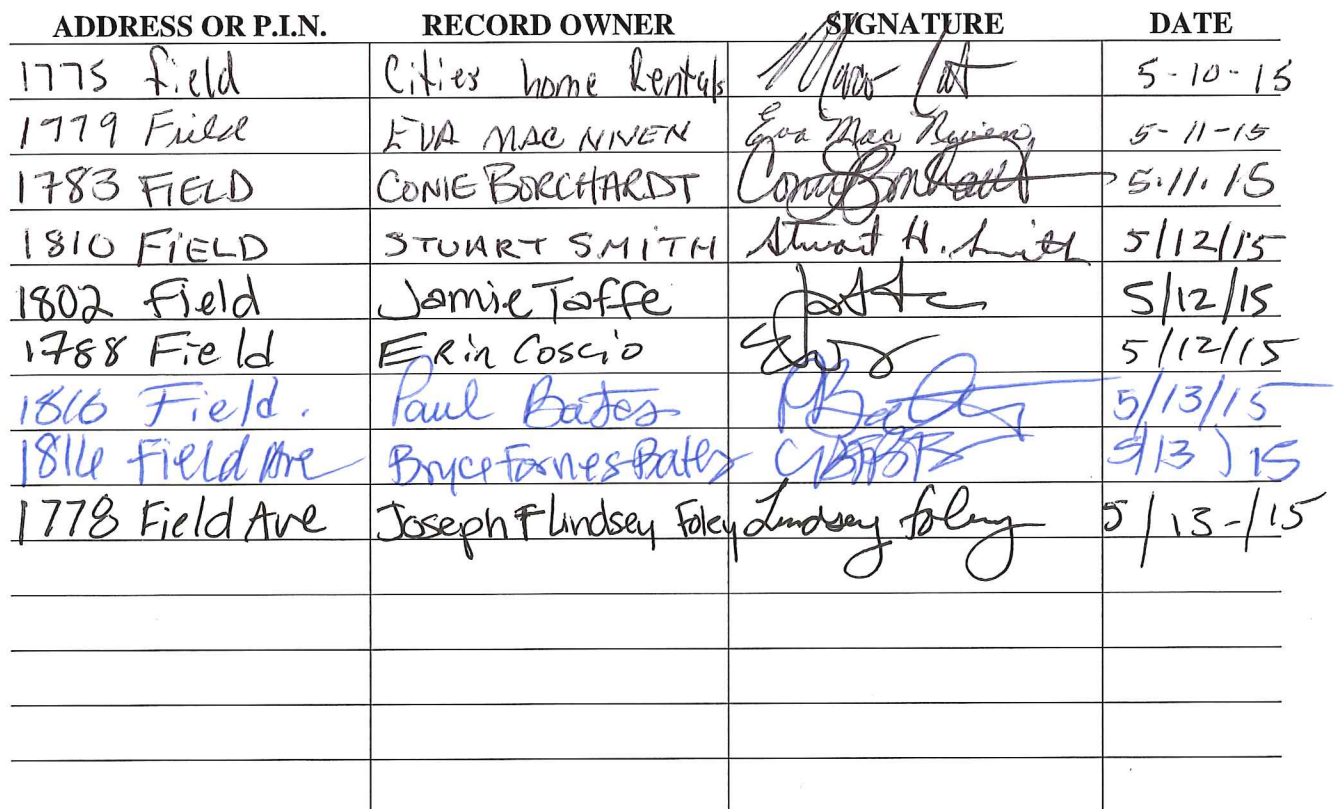 ADDRESS OR P.I.N. RECORD OWNER SIGNATURE DATE
1775 Field Cities home Rentals 5-10-15
1779 Field EVA MAC NIVEN Eva Mac Niven 5-11-15
1783 FIELD CONIE BORCHARDT Conie Borchardt 5.11.15
1810 FIELD STUART SMITH Stuart H. Smith 5/12/15
1802 Field Jamie Taffe 5/12/15
1788 Field ERin Coscio 5/12/15
1816 Field. Paul Bates PBates 5/13/15
1816 Field Ave Bryce Fornes Bates 5/13/15
1778 Field Ave Joseph & Lindsey Foley Lindsey Foley 5/13-/15